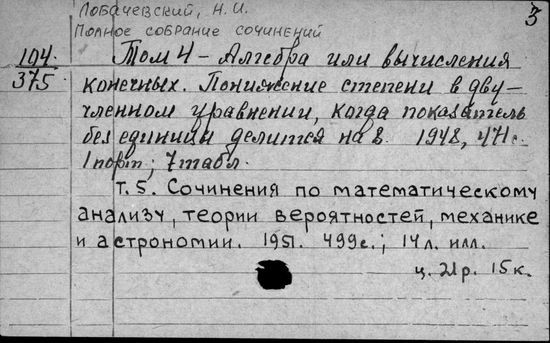 Лобачевский, Н. И. 3
Полное собрание сочинений
104 Том 4 - Алгебра или вычисления
375 конечных. Понижение степени в дву-
членном уравнении, когда показатель
без единицы делится на 8. 1948, 471 с.
1 порт.; 7 табл.
Т. 5. Сочинения по математическому
анализу, теории вероятностей, механике
и астрономии. 1951. 499 с.; 14 л. илл.
ц. 21 р. 15 к.